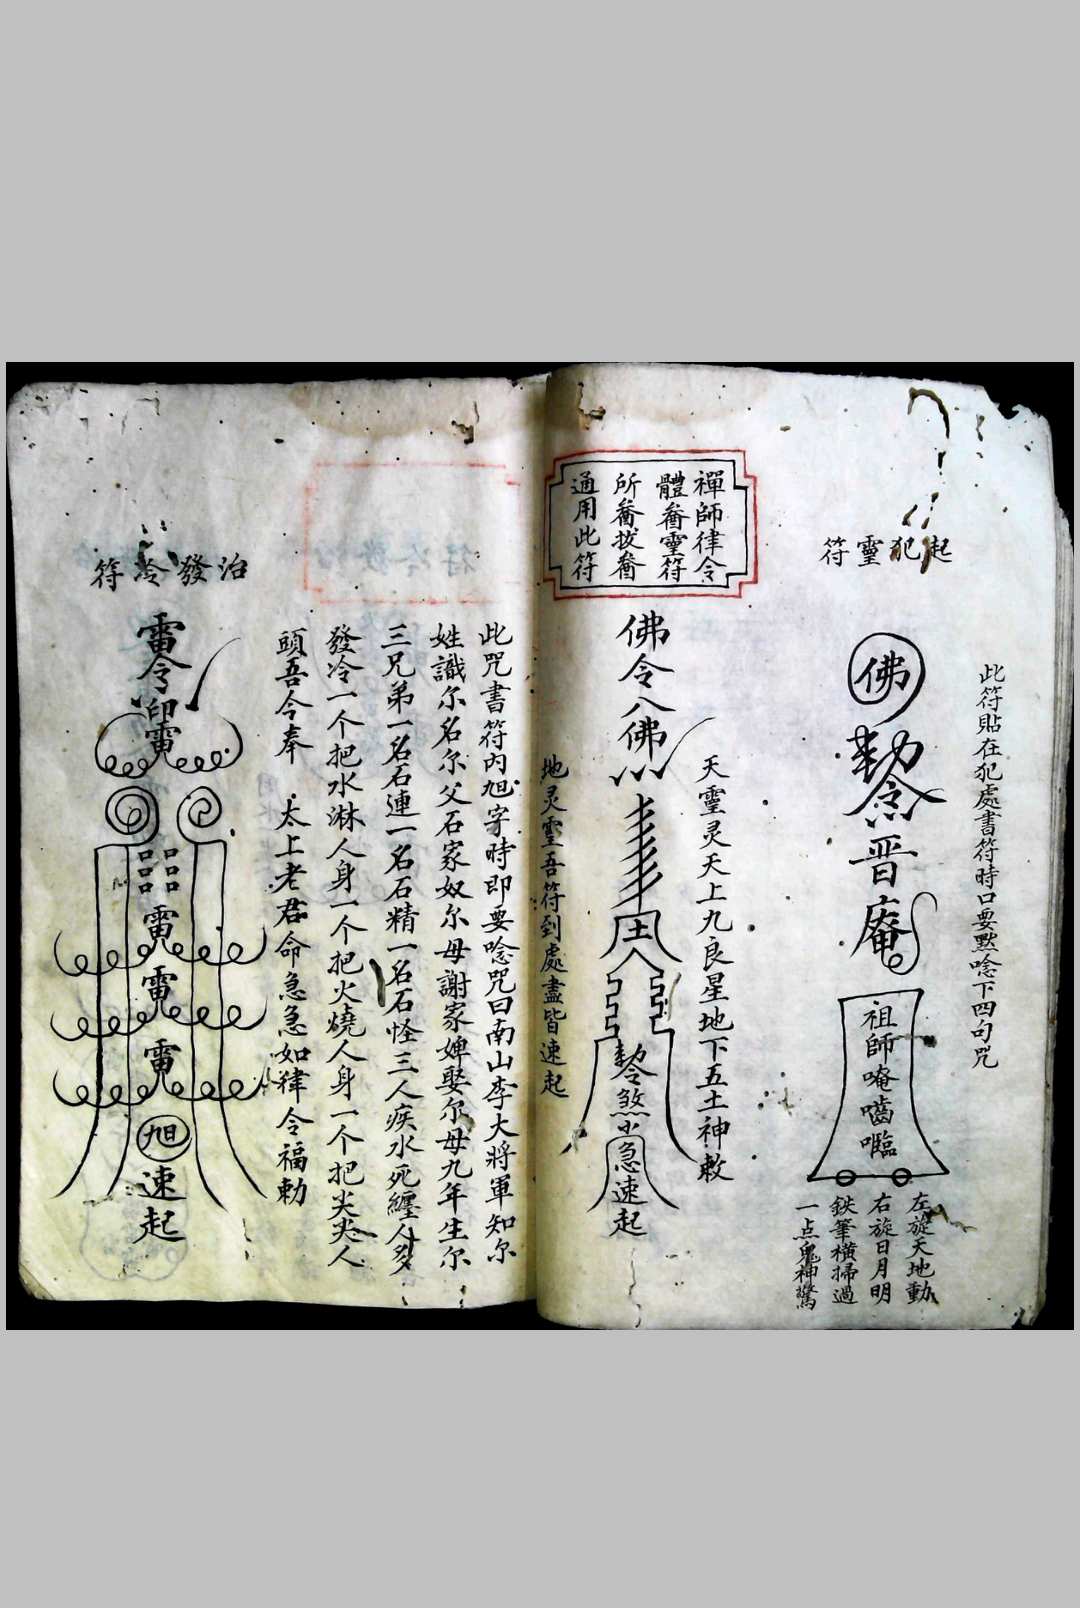 起犯靈符
此符貼在犯處書符時口要默唸下四句咒
佛
勅令
晋
庵
祖師唵嚙囒
左旋天地動
右旋日月明
鉄筆橫掃過
一点鬼神驚
禪師律令
體畨靈符
所畨拔畨
通用此符
天靈灵天上九良星地下五土神敕
佛令八佛
勅令煞
急速起
地灵靈吾符到處盡皆速起
此咒書符內旭字時即要唸咒曰南山李大將軍知尔
姓識尔名尔父石家奴尔母謝家婢娶尔母九年生尔
三兄弟一名石連一名石精一名石怪三人疾水死纏人多
發冷一个把水淋人身一个把火燒人身一个把尖尖人
頭吾今奉 太上老君命急急如律令福勅
治發冷符
雷令
電
電
電
電
旭
速起